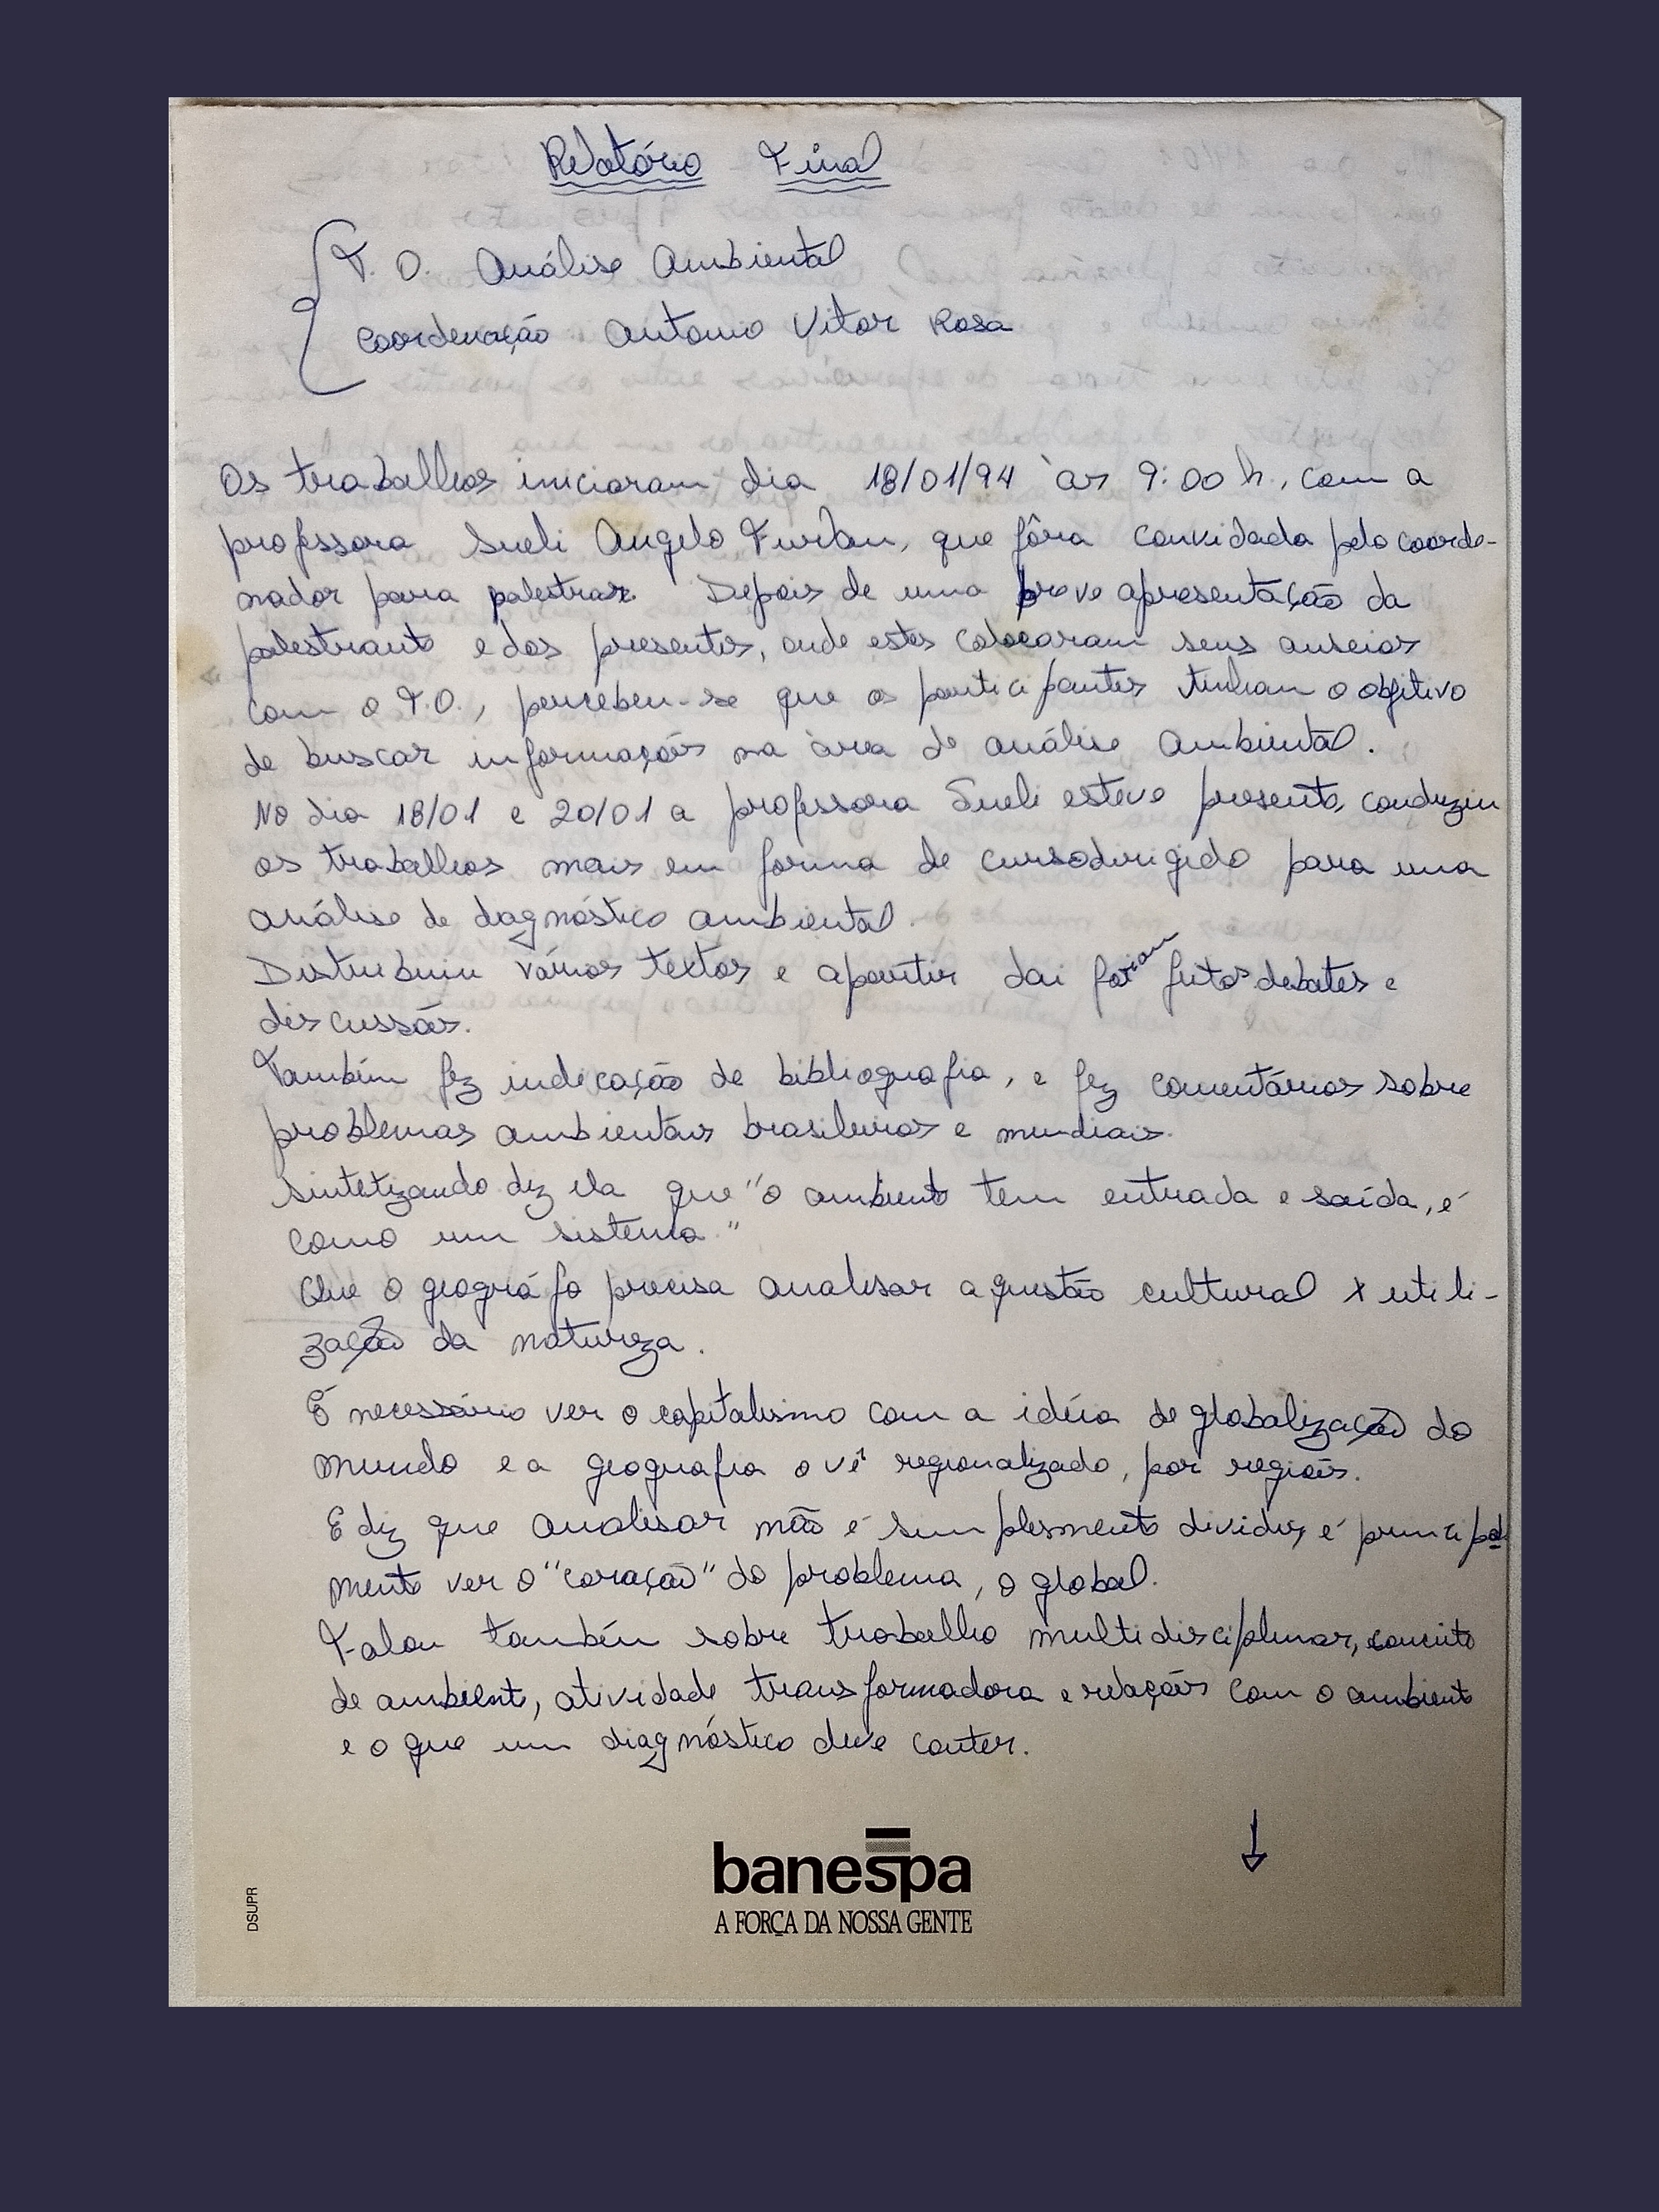 Relatório Final
T. O. Análise Ambiental
Coordenação Antonio Vitor Rosa
Os trabalhos iniciaram dia 18/01/94 às 9:00 h., com a
professora Sueli Angelo Furlan, que fôra convidada pelo coorde-
nador para palestrar. Depois de uma breve apresentação da
palestrante e dos presentes, onde estes colocaram seus anseios
com o T.O., percebeu-se que os participantes tinham o objetivo
de buscar informações na àrea de análise ambiental.
No dia 18/01 e 20/01 a professora Sueli esteve presente, conduziu
os trabalhos mais em forma de curso dirigido para uma
análise de diagnóstico ambiental.
Distribuiu vários textos e apartir dai foram feitos debates e
discussões.
Também fez indicação de bibliografia, e fez comentários sobre
problemas ambientais brasileiros e mundiais.
Sintetizando diz ela que "o ambiente tem entrada e saída, é
como um sistema."
Que o geográfo precisa analisar a questão cultural x utili-
zação da natureza.
É necessário ver o capitalismo com a idéia de globalização do
mundo e a geografia o vê regionalizado, por regiões.
E diz que analisar não é simplesmente dividir, é principal
mente ver o "coração" do problema, o global.
Falou também sobre trabalho multidisciplinar, conceito
de ambiente, atividade transformadora e relações com o ambiente
e o que um diagnóstico deve conter.
banespa
A FORÇA DA NOSSA GENTE
DSUPR